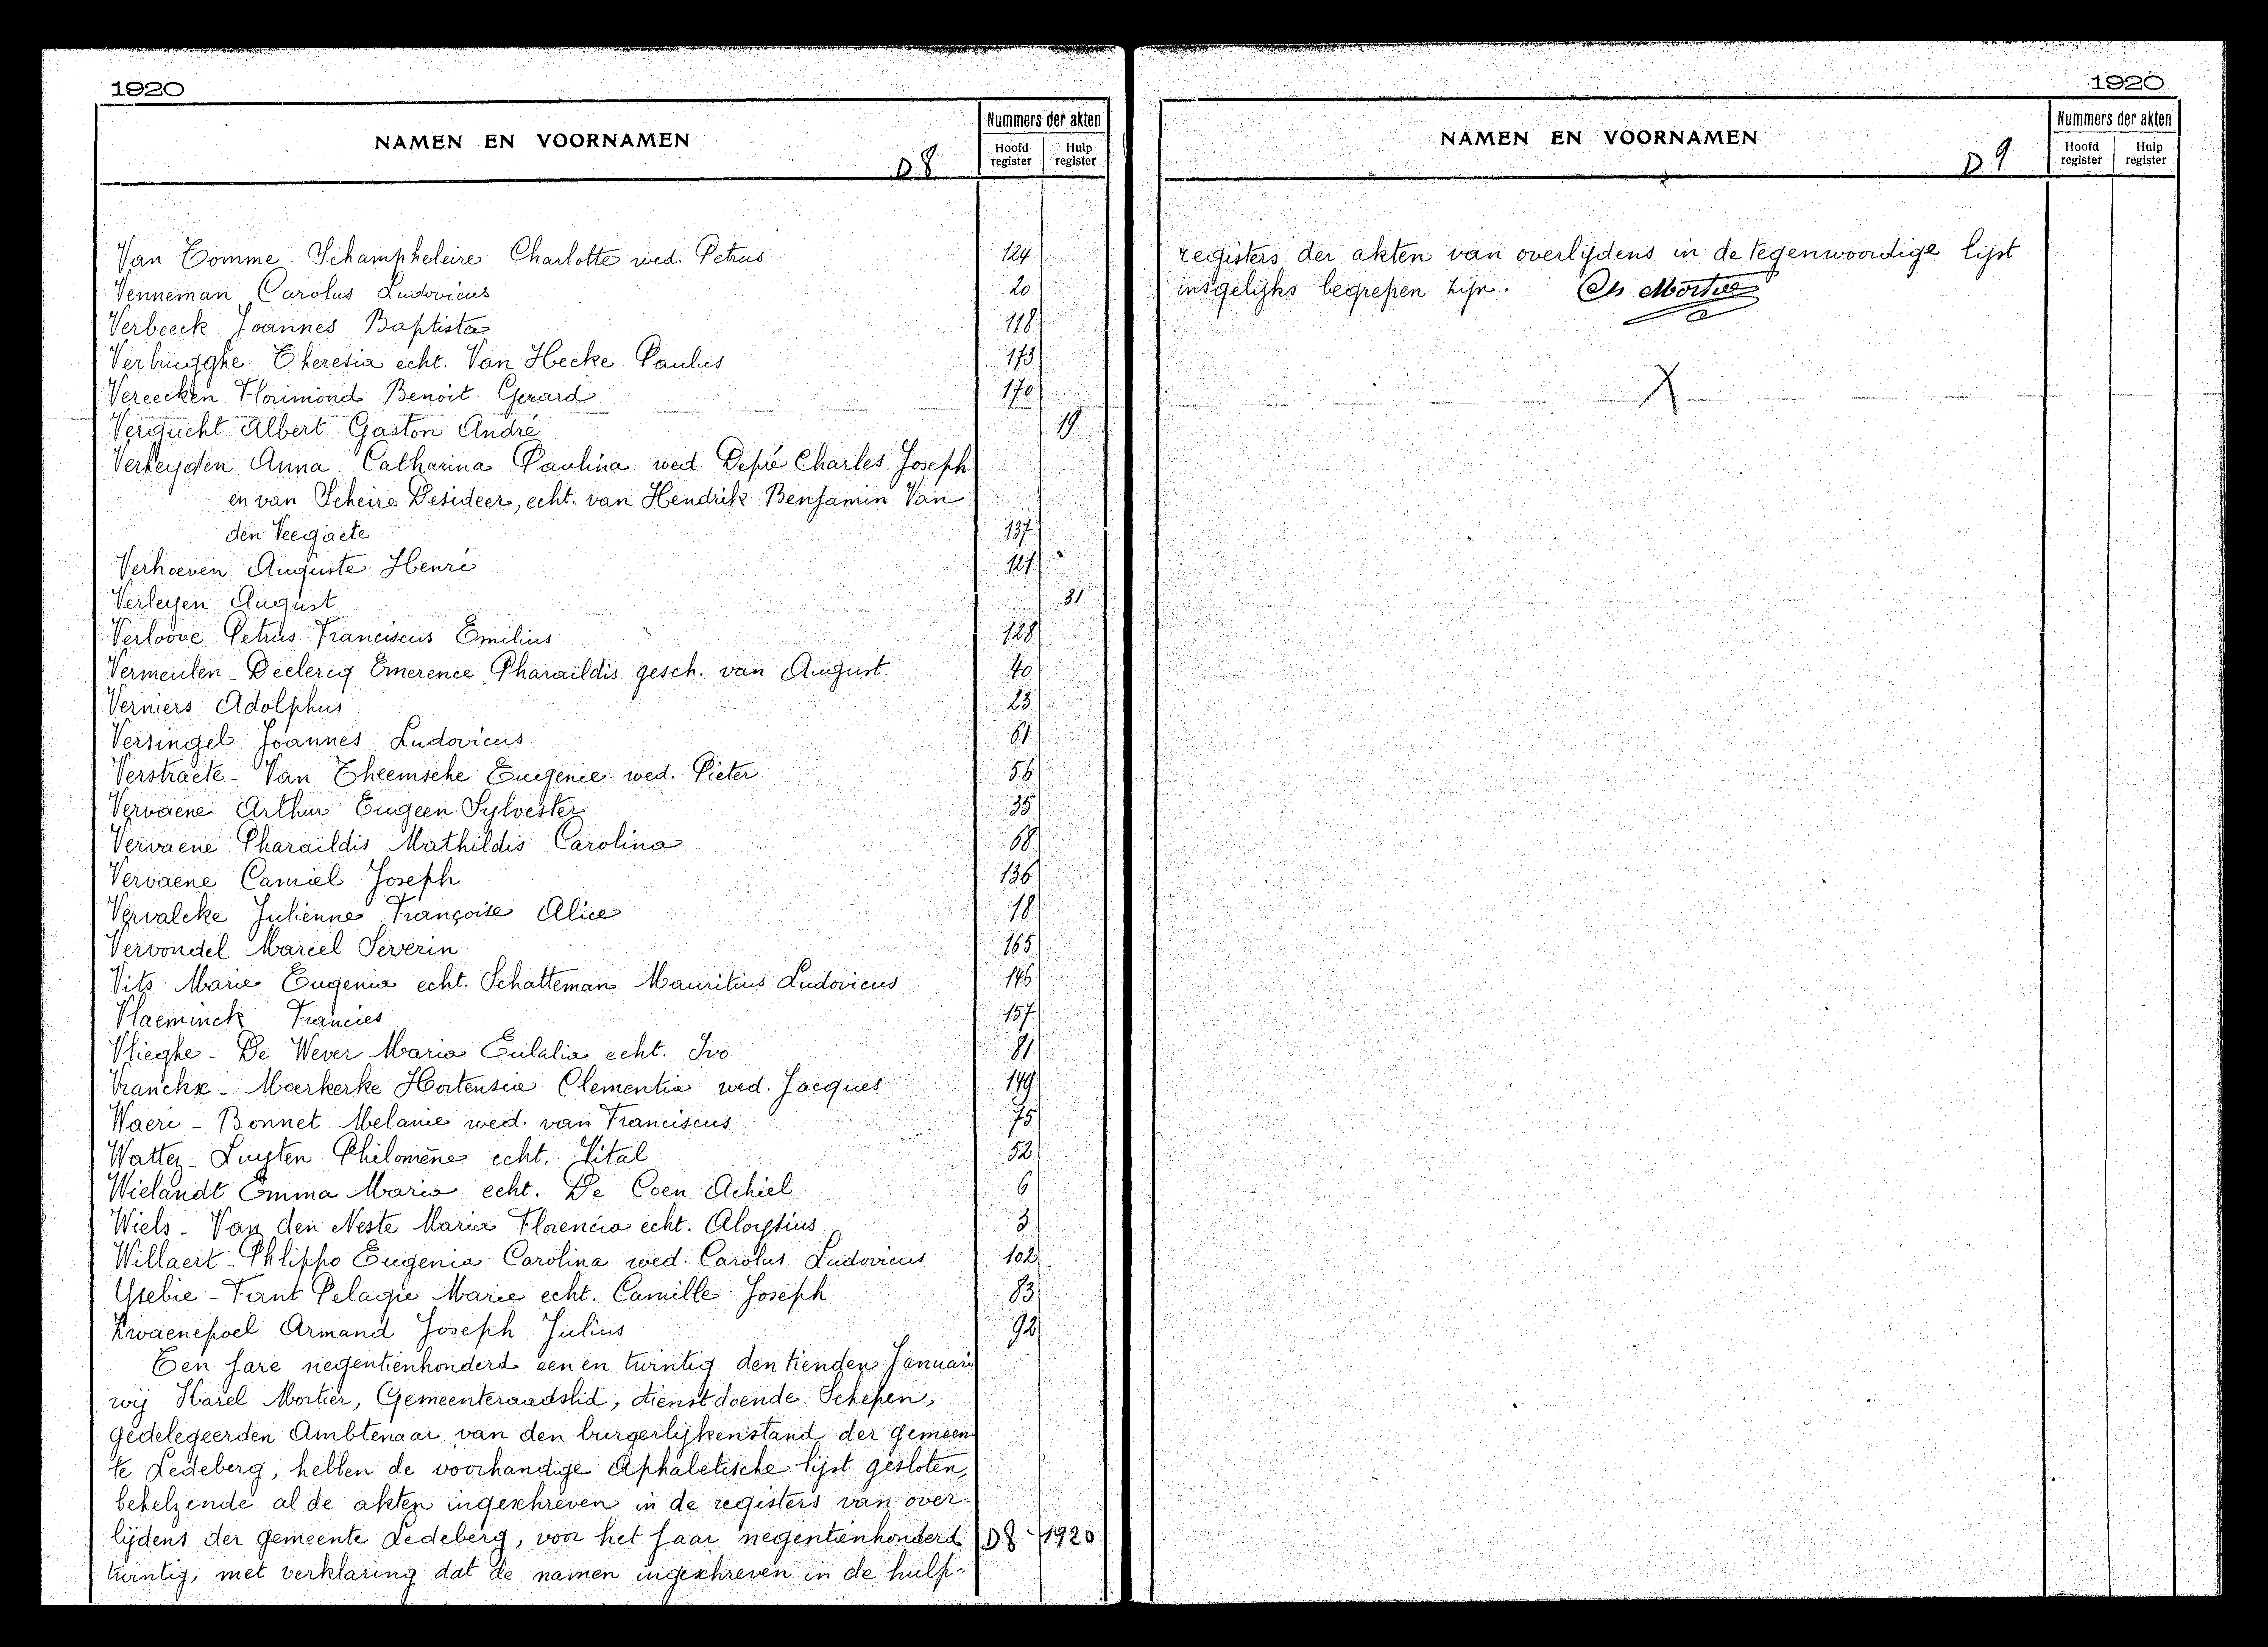 1920
NAMEN EN VOORNAMEN
D8
Nummers der akten
Hoofd register
Hulp register
Van Tomme - Schampheleire Charlotte wed. Petrus 124
Venneman Carolus Ludovicus 20
Verbeeck Joannes Baptista 118
Verbrugghe Theresia echt. Van Hecke Paulus 173
Vereecken Florimond Benoit Gerard 170
Vergucht Albert Gaston André 19
Verheyden Anna Catharina Paulina wed. Depré Charles Joseph
en van Scheire Desideer, echt. van Hendrik Benjamin Van
den Veegaete 137
Verhoeven Auguste Henri 121
Verleyen August 31
Verloove Petrus Franciscus Emilius 128
Vermeulen - Declercq Emerence Pharaïldis gesch. van August 40
Verniers Adolphus 23
Versingel Joannes Ludovicus 61
Verstraete - Van Theemsche Eugenie wed. Pieter 56
Vervaene Arthur Eugeen Sylvester 35
Vervaene Pharaïldis Mathildis Carolina 68
Vervaene Camiel Joseph 136
Vervalcke Julienne Françoise Alice 18
Vervondel Marcel Severin 165
Vits Marie Eugenia echt. Schatteman Mauritius Ludovicus 146
Vlaeminck Francies 157
Vlieghe - De Wever Maria Eulalia echt. Ivo 81
Vranckx - Moerkerke Hortensia Clementia wed. Jacques 149
Waeri - Bonnet Melanie wed. van Franciscus 75
Wattez - Luyten Philomène echt. Vital 52
Wielandt Emma Maria echt. De Coen Achiel 6
Wiels - Van den Neste Maria Florencia echt. Aloysius 3
Willaert - Phlippo Eugenia Carolina wed. Carolus Ludovicus 102
Ysebie - Fant Pelagie Marie echt. Camille Joseph 83
Zwaenepoel Armand Joseph Julius 92
Een jare negentienhonderd een en twintig den tienden Januari
wij Karel Mortier, Gemeenteraadslid, dienstdoende Schepen,
gedelegeerden Ambtenaar van den burgerlijkenstand der gemeen-
te Ledeberg, hebben de voorhandige Alphabetische lijst gesloten,
behelzende al de akten ingeschreven in de registers van over-
lijdens der gemeente Ledeberg, voor het jaar negentienhonderd
D8 - 1920
twintig, met verklaring dat de namen ingeschreven in de hulp-
1920
NAMEN EN VOORNAMEN
D9
Nummers der akten
Hoofd register
Hulp register
registers der akten van overlijdens in de tegenwoordige lijst
insgelijks begrepen zijn. Ch Mortier